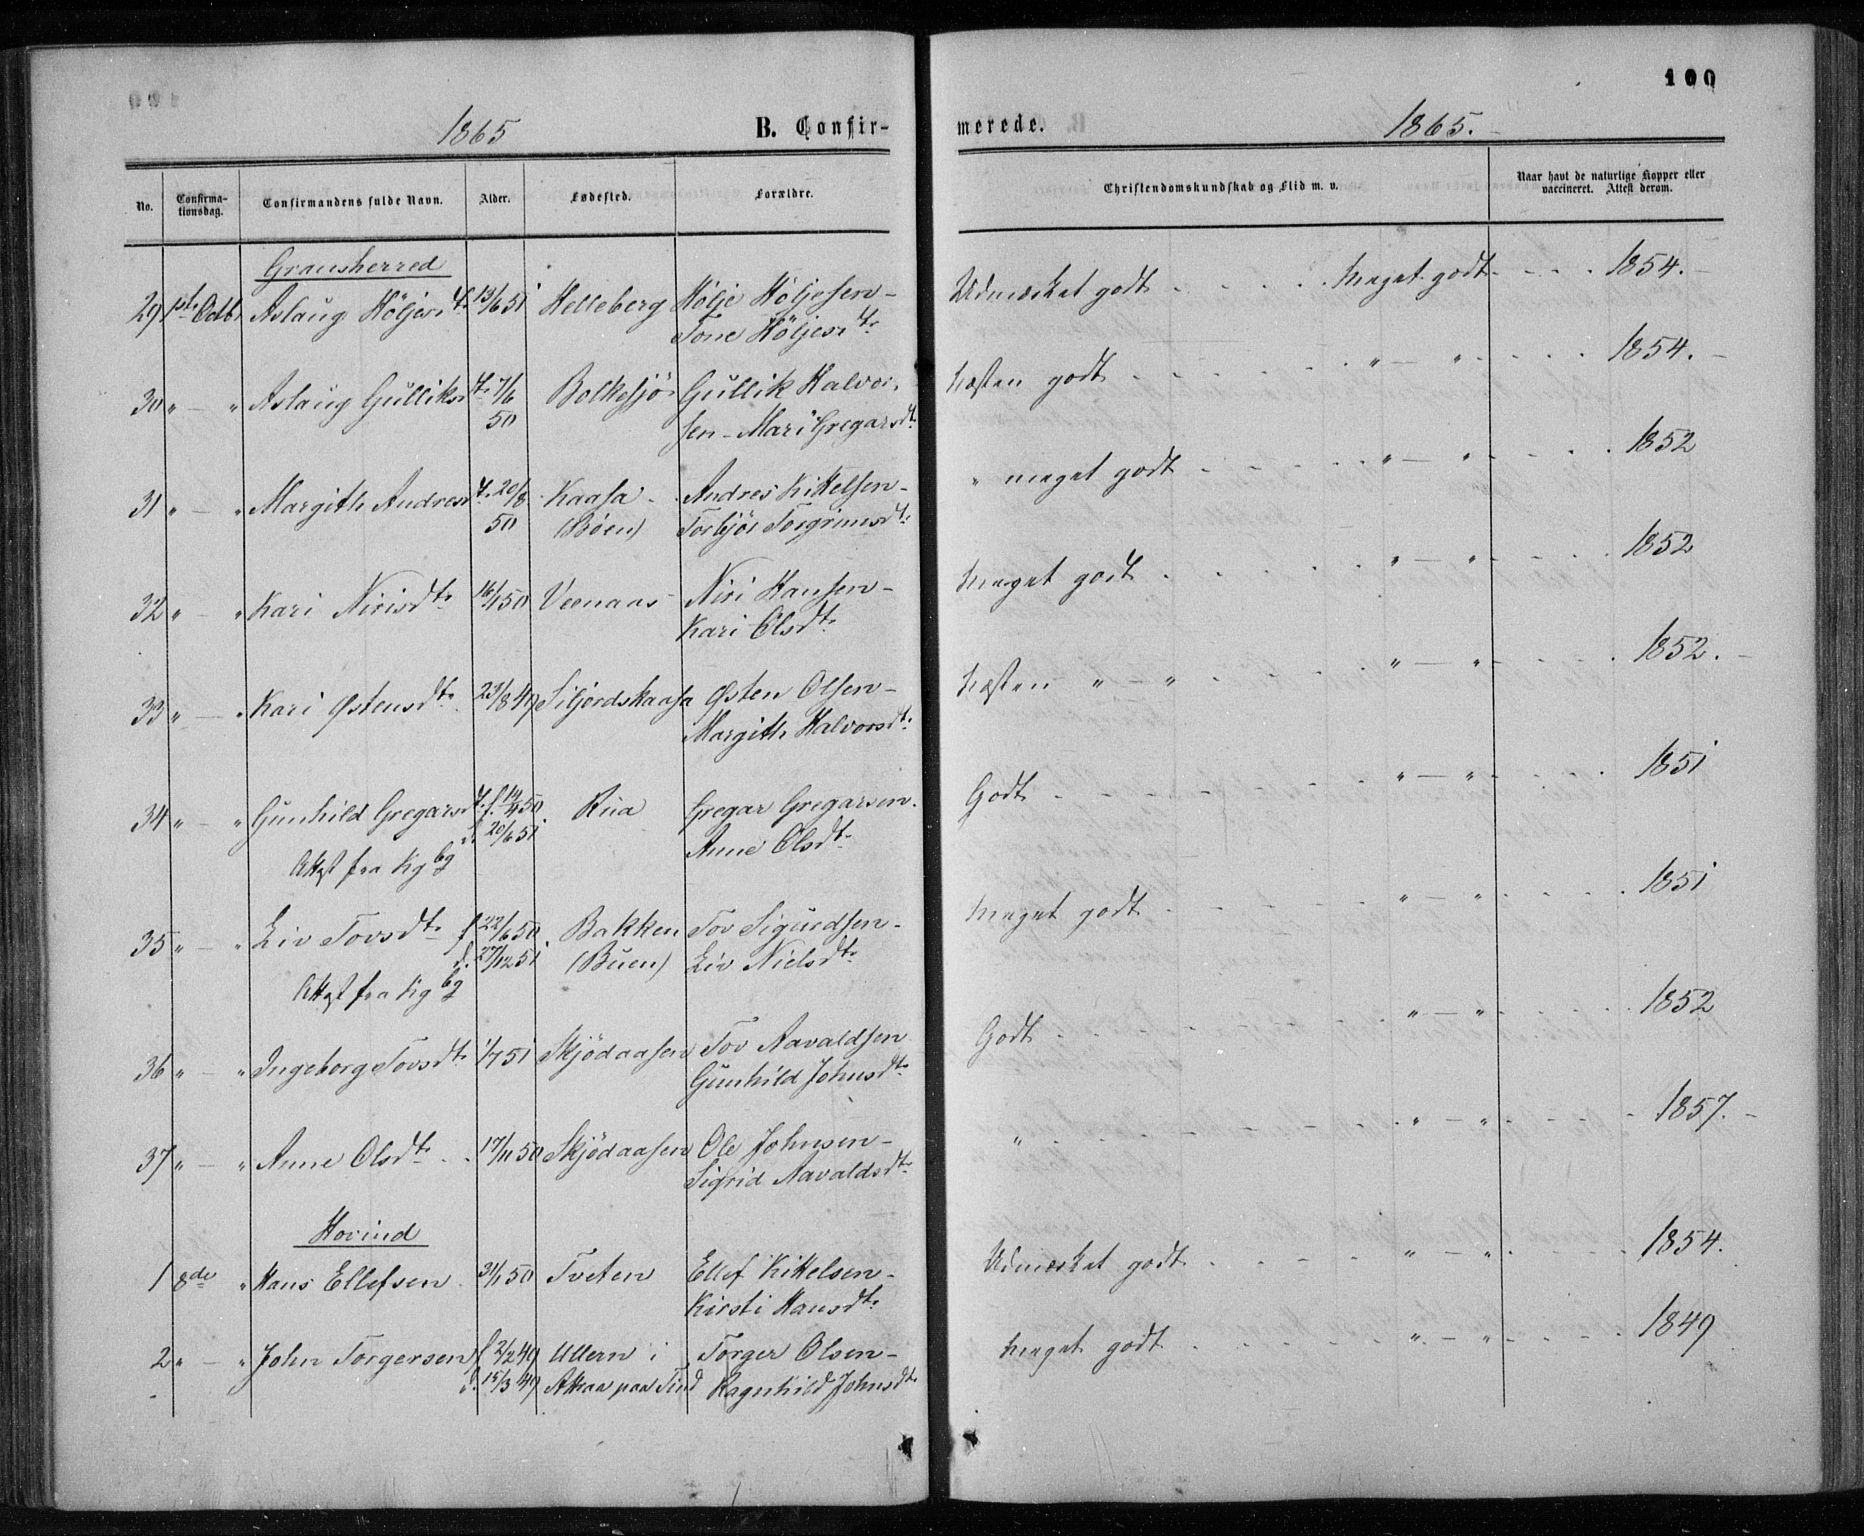 100
1865
B. Confir-
merede.
1865.
No.
Confirma-
tionsdag.
Confirmandens fulde Navn.
Alder.
Fødested.
Forældre.
Christendomskundskab og Flid m. v.
Naar havt de naturlige Kopper eller
vaccineret. Attest derom.
Gransherred
29 1ste Octbr Aslaug Höljesdt. 13/6 51 Helleberg Hölje Höljesen –
Tone Höljesdt.
Udmærket godt Meget godt 1854.
30 " — " Aslaug Gulliksdt. 7/6
50 Bolkesjö Gullik Halvor-
sen – Mari Gregarsdt.
Næsten godt " — " 1854.
31 " — " Margith Andresdt. 20/8
50 Kaasa Andres Kittelsen –
(Böen) Torbjör Torgrimsdt.
" meget godt " — " 1852
32 " — " Kari Nirisdt. 16/1 50 Veenaas Niri Hansen –
Kari Olsdt.
Meget godt " — " 1852
33 " — " Kari Østensdt. 23/8 49 Siljordskaasa Østen Olsen –
Margith Halvorsdt.
Næsten " — " " — " 1852.
34 " — " Gunhild Gregarsdt. f. 14/4 50 Rua Gregar Gregarsen.
d. 20/6 51 Anne Olsdt.
Attest fra Kgbg
Godt " — " 1851
35 " — " Liv Tovsdt. f. 22/6 50 Bakken Tov Sigurdsen –
d. 27/12 51 (Buen) Liv Nielsdt.
Attest fra Kgbg
Meget godt " — " 1851
36 " — " Ingeborg Tovsdt. 1/7 51 Skjödaasen Tov Aavaldsen
Gunhild Johnsdt.
Godt " — " 1852
37 " — " Anne Olsdt. 17/11 50 Skjödaasen Ole Johnsen –
Sigrid Aavaldsdt.
" " — " 1857.
Hovind
1 8de " Hans Ellefsen 31/1 50 Tveten Ellef Kittelsen –
Kirsti Hansdt.
Udmærket godt " — " 1854.
2 " — " John Torgersen f. 2/2 49 Ullern i Torger Olsen –
d. 15/3 49 Atraa paa Tind Ragnhild Johnsdt.
Meget godt " — " 1849